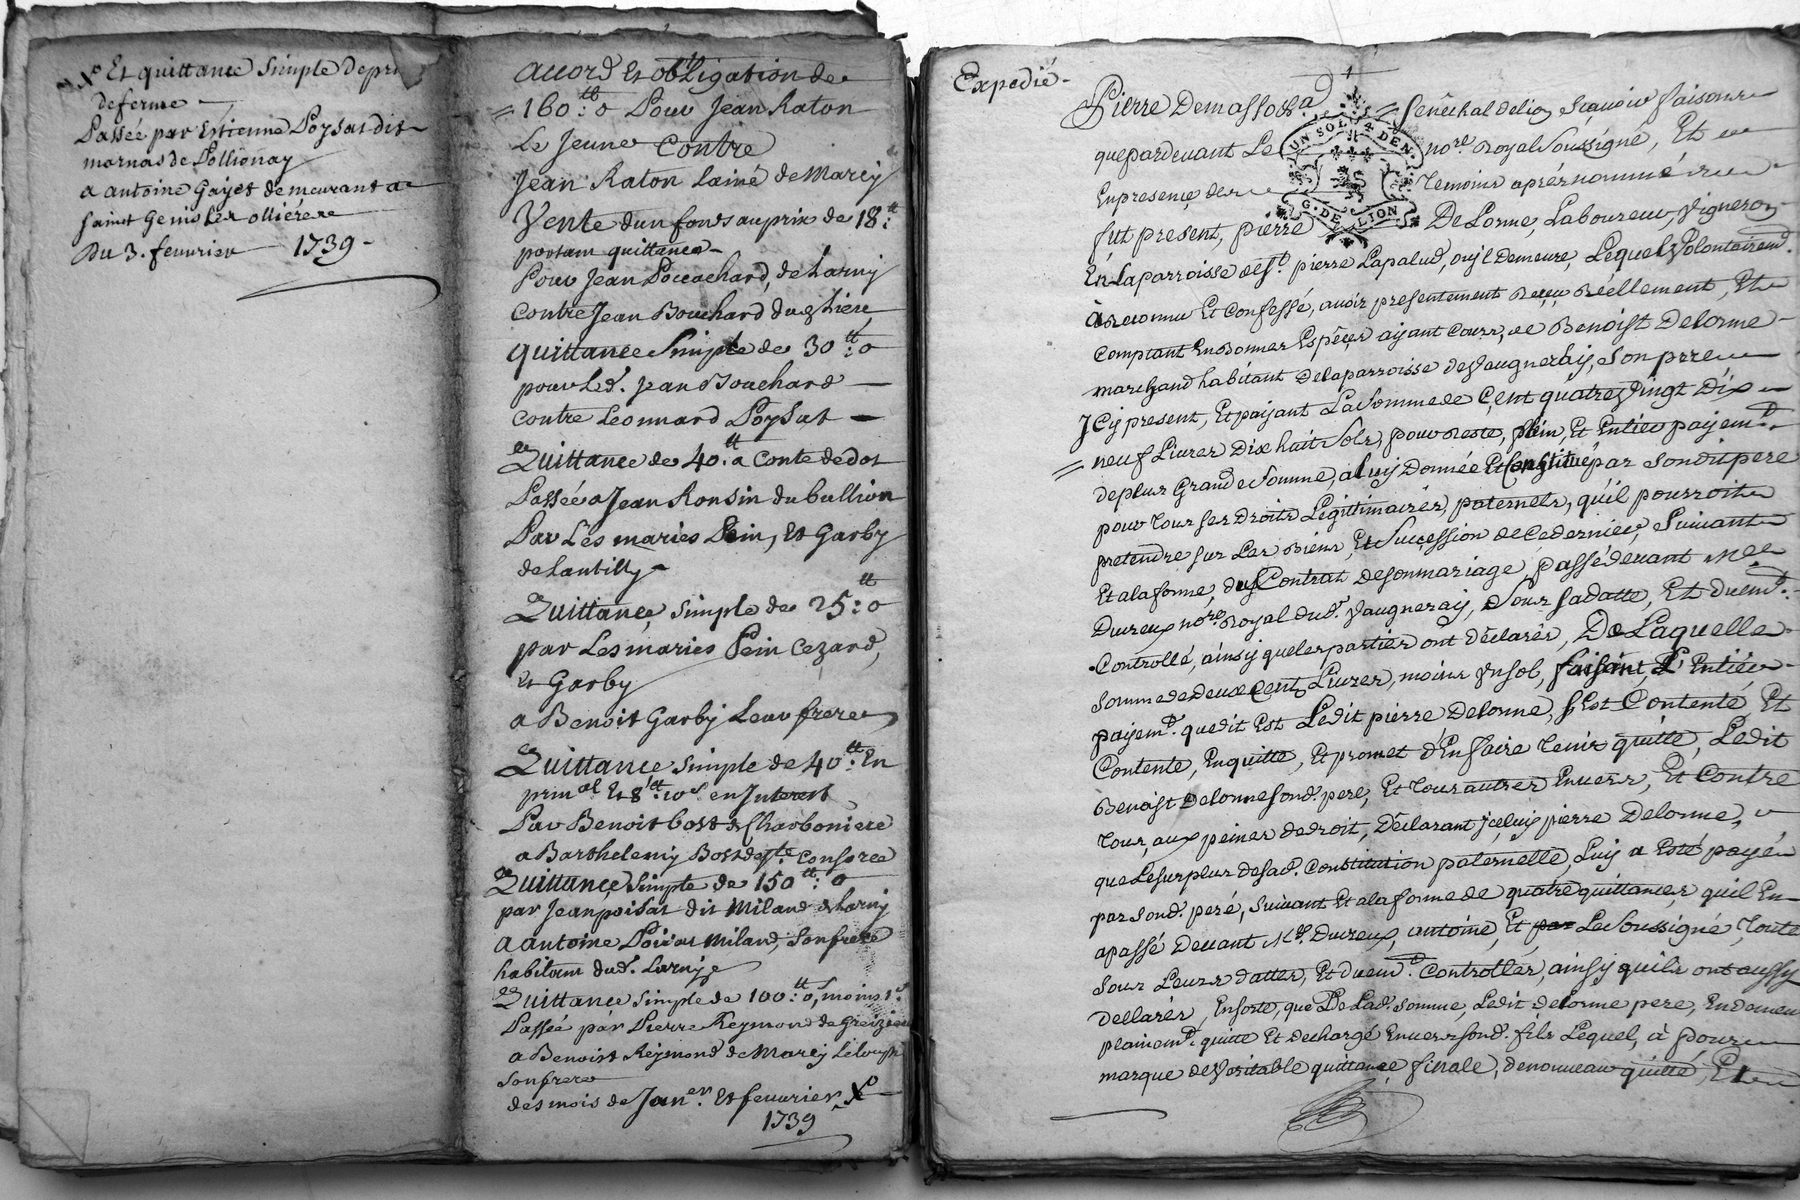 Et quittance simple de
de ferme
Passée par Estienne Poysat dit
marnas de Pollionay
a antoine Gayet demeurant a
saint Genis Les ollieres
Du 3. feuurier 1739
accord Et obligation de
160:tt 0 Pour Jean Raton
Le Jeune Contre
Jean Raton Lainé de Marcy
Vente dun fonds au prix de 18:tt
portant quittance
Pour Jean Bouchard, de Larny
Contre Jean Bouchard
quittance Simple de 30:tt 0
pour Led. Jean Bouchard
contre Leonnard Poysat
Quittance de 40:tt a Conte de dot
Passée a Jean Ronsin du bullion
Par Les mariés Pein, Et Garby
de Lantilly
Quittance, simple de 25:tt 0
par Les mariés Pein Cezard,
Et Garby
a Benoit Garby Leur frere
Quittance simple de 40:tt En
prinal Et 8:tt 10s en Interest
Par Benoit bost de Charboniere
a Barthelemy Bost
Quittance Simple de 150:tt 0
par Jean poisat dit Milan de Larny
a antoine Poizat Milan, Son frere
habitant dud. Larny
Quittance simple de 100:tt 0s, moins 1s
Passée par Pierre Reymond de Greizieu
a Benoist Reymond de Marcy Le Loup
son frere
des mois de Janer. Et feuurier
1739
Expedié
Pierre Demassoss Senéchal de Lion Sçauoir faisons
que pardeuant Le nore. Royal Soussigné, Et
En presence des temoins aprés nommés
fut present, pierre De Lorme, Laboureur, Vigneron
En La parroisse de St. pierre Lapalud, ou il Demeure, Lequel Volontairemt.
à reconnu Et Confessé, auoir presentement Reçu Réellement, Et
Comptant En bonnes Espéces ayant Cours, de Benoist Delorme
marchand habitant De la parroisse de Vaugneray, son pere
Icy present, Et payant La Somme de Cent quatre Vingt Dix
neuf Livres Dix huit Sols, pour Reste, plein, Et Entier payemt.
de plus Grande Somme, a luy Donnée Et Constitué par Sondit pere
pour tous ses droits Legitimaires, paternels, qu'il pourroit
pretendre sur Les Biens, Et Succession de Ce dernier, Suiuant
Et a la forme, du Contrat de son mariage passé deuant Me
Ducreux nore. Royal dud. Vaugneray, Sous Sa datte, Et Duemt.
Controllé, ainsy que les parties ont Déclarés, De Laquelle
somme de deux Cent Livres, moins Un sol, faisant, L'Entier
payemt. que dit Est Ledit pierre Delorme, s'Est Contenté Et
Contente, En quitte, Et promet d'En faire tenir quitte, Ledit
Benoist Delorme sond. pere, Et tous autres Enuers, Et Contre
tous, aux peines de droit, Déclarant Iceluy pierre Delorme,
que Le surplus de sad. Constitution paternelle, Luy a Esté payé
par sond. pere, Suiuant Et a la forme de quatre quittances, qu'il En
a passé Deuant Me. Ducreux, antoine, Et par Le Soussigné, toute
sous Leurs dattes, Et duemt. Controllés, ainsy qu'ils ont aussy
declarés, En sorte, que De Lad. somme, Ledit delorme pere, En demeure
plainemt. quitte Et dechargé Enuers sond. fils Lequel, à pour
marque de Veritable quittance finale, de nouueau quitté, Et
UN SOL 4 DEN.
G. DE LION